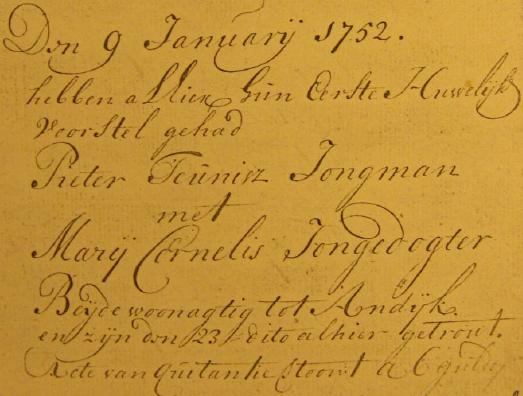 Den 9 Januarÿ 1752.
hebben alhier hun Eerste Huwelijk
Voorstel gehad
Pieter Teunisz Jongman
met
Marÿ Cornelis Jongedogter
Beÿde woonagtig tot Andÿk.
en zÿn den 23 dito alhier getrout.
van Quitantie a 6